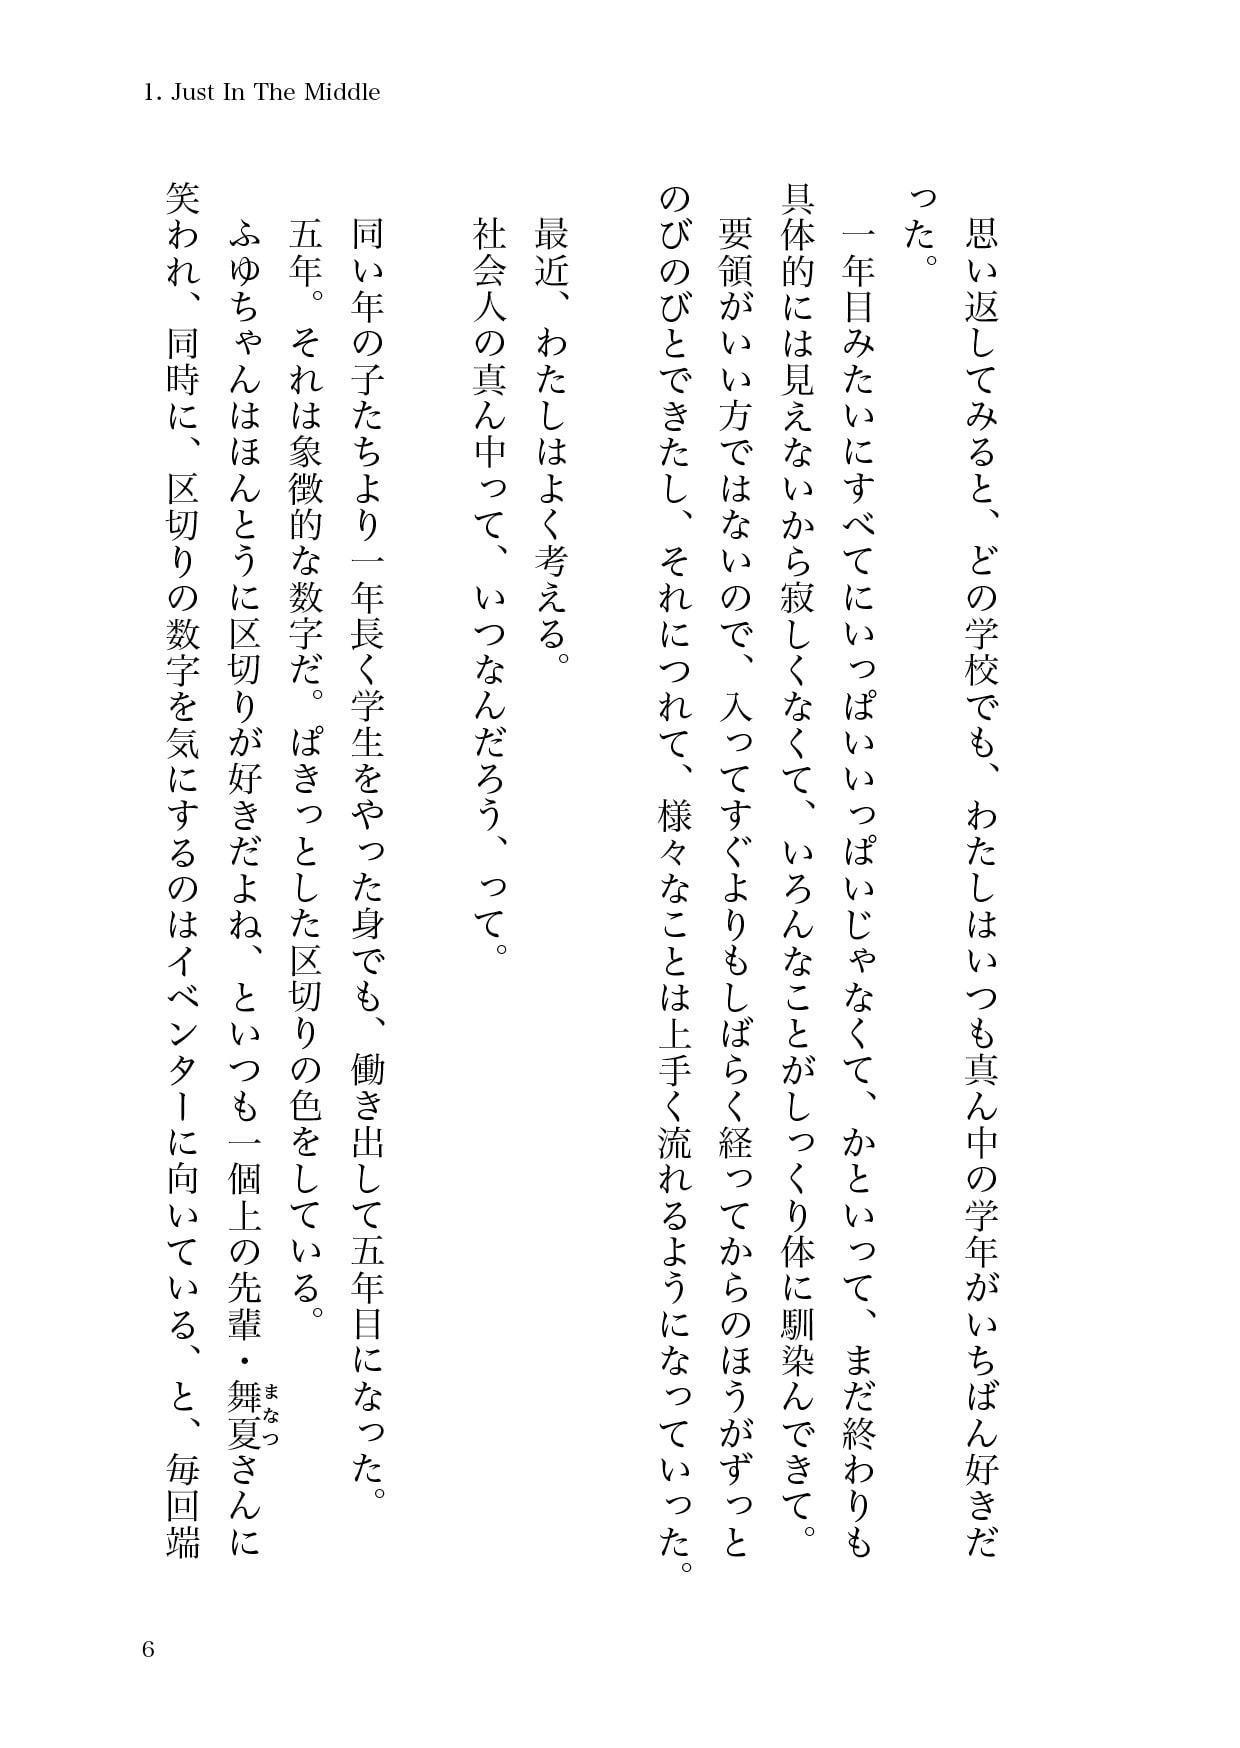 1. Just In The Middle
思い返してみると、どの学校でも、わたしはいつも真ん中の学年がいちばん好きだ
った。
一年目みたいにすべてにいっぱいいっぱいじゃなくて、かといって、まだ終わりも
具体的には見えないから寂しくなくて、いろんなことがしっくり体に馴染んできて。
要領がいい方ではないので、入ってすぐよりもしばらく経ってからのほうがずっと
のびのびとできたし、それにつれて、様々なことは上手く流れるようになっていった。
最近、わたしはよく考える。
社会人の真ん中って、いつなんだろう、って。
同い年の子たちより一年長く学生をやった身でも、働き出して五年目になった。
五年。それは象徴的な数字だ。ぱきっとした区切りの色をしている。
ふゆちゃんはほんとうに区切りが好きだよね、といつも一個上の先輩・舞夏さんに
まなつ
笑われ、同時に、区切りの数字を気にするのはイベンターに向いている、と、毎回端
6